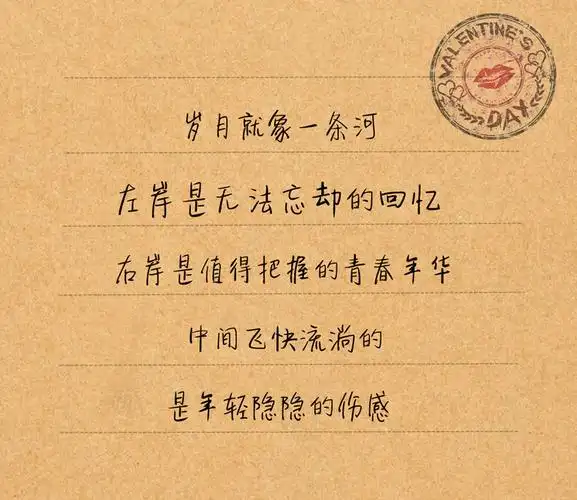 VALENTINE'S
DAY
岁月就象一条河
左岸是无法忘却的回忆
右岸是值得把握的青春年华
中间飞快流淌的
是年轻隐隐的伤感